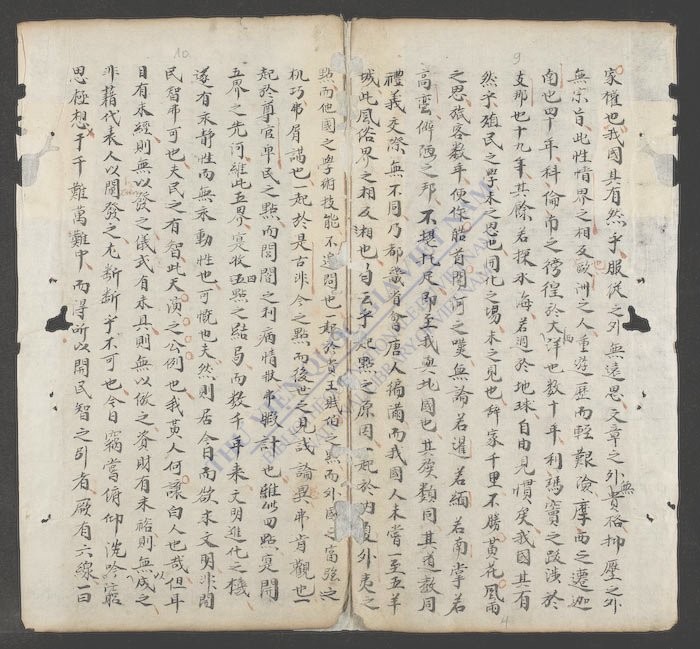 9
家權也我國其有然乎服從之外無遠思文章之外無貴格抑壓之外
無宗旨此性情界之相反歐洲之人重遊歷而輕艱險摩西之遷迦
南也四十年科倫布之徬徨於大西洋也數十年利瑪竇之跋涉於
支那也十九年其餘若探水海若週於地球自由見慣矣我國其有
然乎殖民之學未之思也同化之場未之見也辭家千里不勝黃花風雨
之思旅客數年便作船首關河之嘆無論若暹若緬若南掌若
高蠻僻陋之邦不堪托足即至我與北國也其族類同其道教同
禮義交際無不同乃都畿省會唐人徧滿而我國人未嘗一至五羊
城此風俗界之相反相也云乎起點之原因一起於内夏外夷之
4
10
點而他國之學術技能不過問也一起於貴王賤伯之點而外國之富強之
机巧弗屑講也一起於是古非今之點而後世之見識論異弗肯觀也一
起於尊官卑民之點而閭閻之利病情狀弗暇計也維此四點寔開
五界之先河維此五界寔收四點之結局而數千年來文明進化之機
遂有永靜性而無永動性也可慨也夫然則居今日而欲求文明非開
民智弗可也夫民之有智此天演之公例也我黃人何讓白人也哉但耳
目有未經則無以發之儀式有未具則無以倣之資財有未裕則無以成之
非藉代表人以開發之尤斷斷乎不可也今日竊當俯仰沈吟滔
思極想千千難萬難中而得所以開民智之術者厥有六線一曰